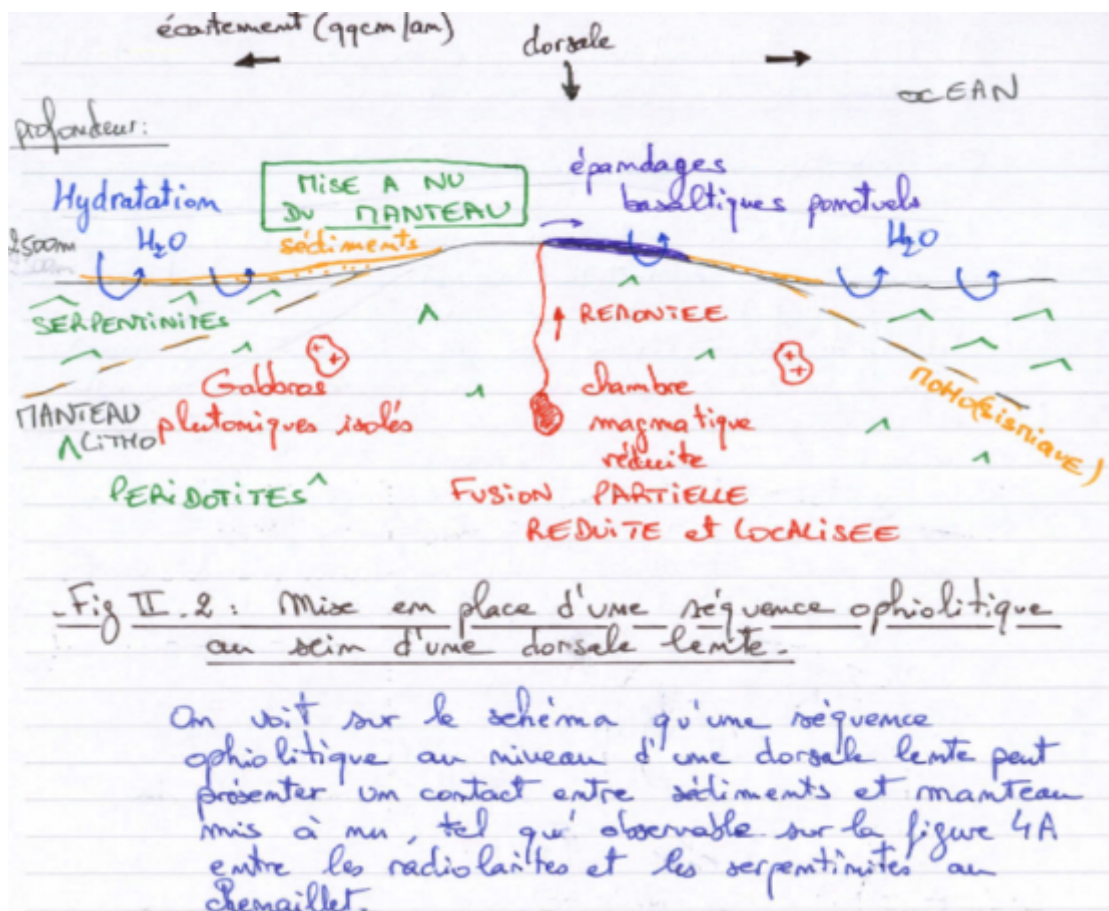 écartement (qqcm/an)
dorsale
OCEAN
profondeur:
Hydratation
MISE A NU
DU MANTEAU
épandages
basaltiques ponctuels
2500m
H₂O
sédiments
H₂O
SERPENTINITES
REMONTEE
Gabbros
plutoniques isolés
chambre
magmatique
réduite
MOHO (sismique)
MANTEAU
LITHO
PERIDOTITES
FUSION PARTIELLE
REDUITE et LOCALISEE
Fig II.2 : Mise en place d'une séquence ophiolitique
au sein d'une dorsale lente.
On voit sur le schéma qu'une séquence
ophiolitique au niveau d'une dorsale lente peut
présenter un contact entre sédiments et manteau
mis à nu, tel qu'observable sur la figure 4A
entre les radiolarites et les serpentinites au
Chenaillet.